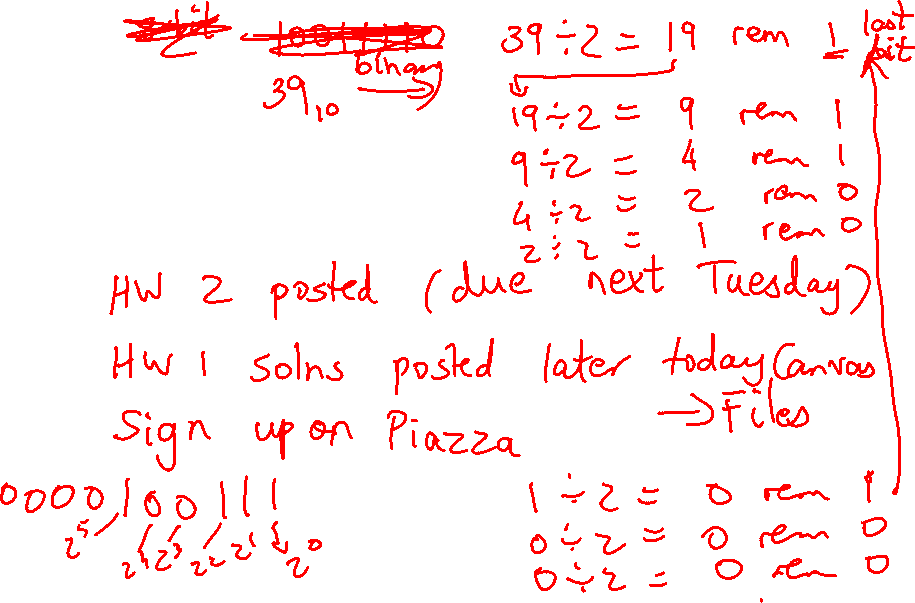 39÷2 = 19 rem 1 last bit
binary
39₁₀ →
19÷2 = 9 rem 1
9÷2 = 4 rem 1
4÷2 = 2 rem 0
2÷2 = 1 rem 0
HW 2 posted (due next Tuesday)
HW 1 solns posted later today Canvas
→ Files
Sign up on Piazza
0000100111
2⁵ 2⁴ 2³ 2² 2¹ 2⁰
1÷2 = 0 rem 1
0÷2 = 0 rem 0
0÷2 = 0 rem 0